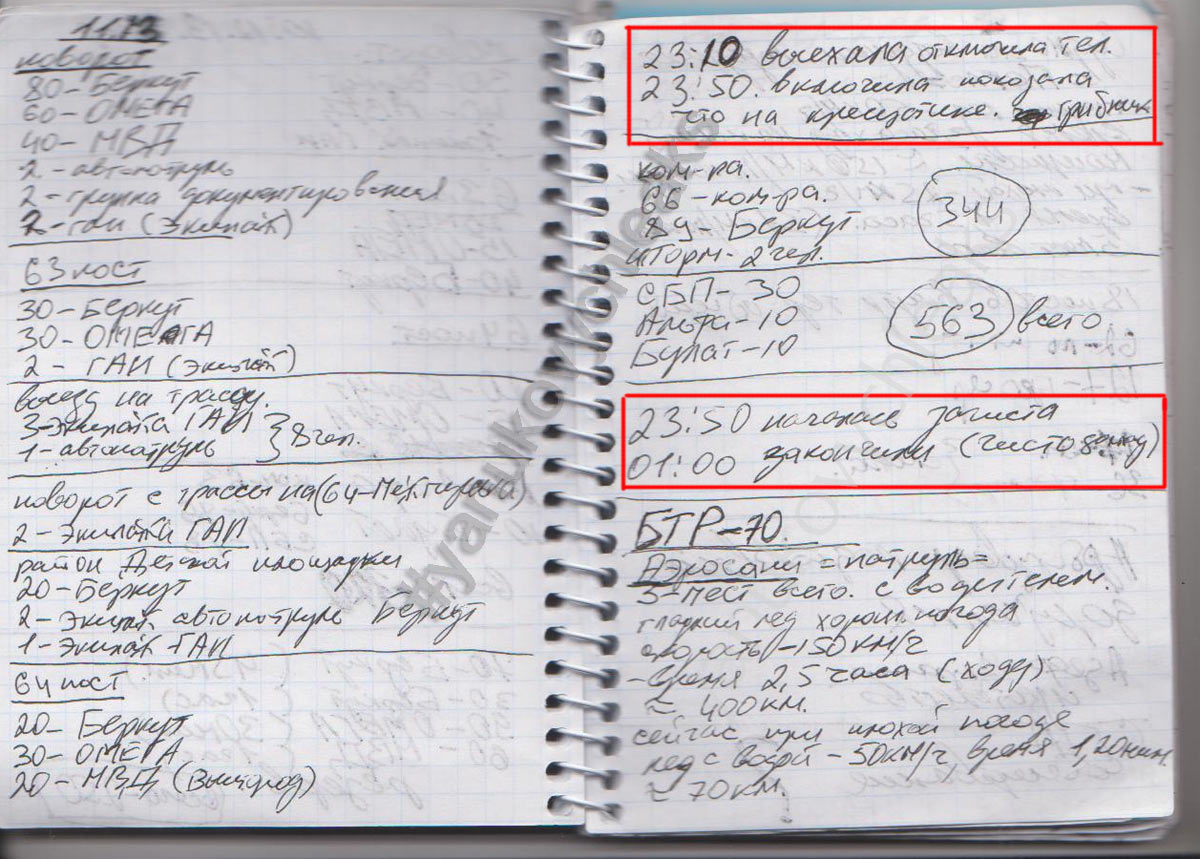 11.12
поворот
80 - Беркут
60 - ОМЕГА
40 - МВД
2. - автопатруль
2 - группа документирования
2 - ГАИ (Экипаж)
63 пост
30 - Беркут
30 - ОМЕГА
2 - ГАИ (Экипаж)
выезд на трассу.
3 - Экипажа ГАИ
1 - автопатруль } 8 чел.
поворот с трассы на (64 - Межгирья)
2 - Экипажа ГАИ
район Детской площадки
20 - Беркут
2 - Экипаж автопатруль Беркут
1 - Экипаж ГАИ
64 пост
20 - Беркут
30 - ОМЕГА
20 - МВД (Вышгород)
23:10 выехала отключила тел.
23:50. включила показала
что на крещатике. Грибник
ком-ра.
66 - ком-ра.
89 - Беркут
шторм - 2 чел.
344
СБП - 30
Альфа - 10
Булат - 10
563 всего
23:50 началась зачистка
01:00 закончили (чисто)
БТР - 70.
Аэросани = патруль =
5 - мест всего. с водителем.
гладкий лед хорош. погода
скорость - 150 км/ч
- время 2,5 часа (ходу)
≈ 400 км.
сейчас при плохой погоде
лед с водой - 50 км/ч, время 1,20 мин.
≈ 70 км.
#yanukovychleaks